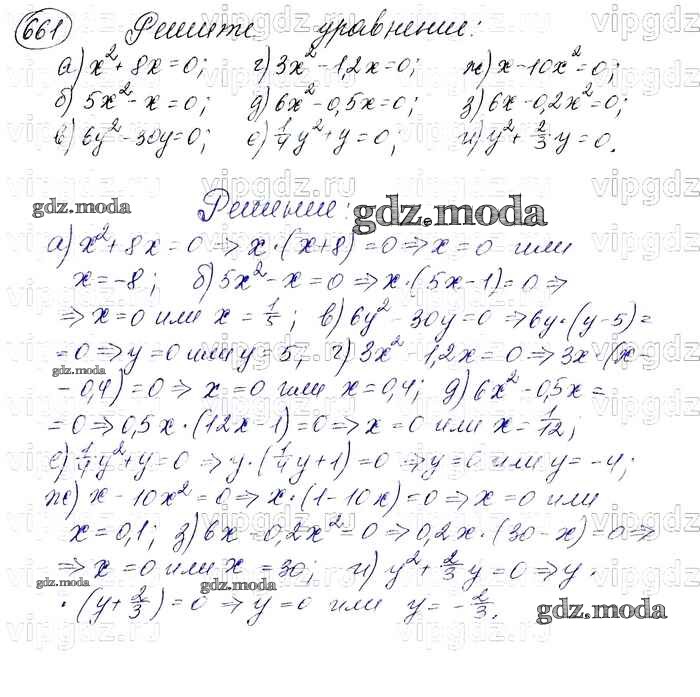 661 Решите уравнение:
а) x² + 8x = 0; г) 3x² - 1,2x = 0; ж) x - 10x² = 0;
б) 5x² - x = 0; д) 6x² - 0,5x = 0; з) 6x - 0,2x² = 0;
в) 6y² - 30y = 0; е) 1/4 y² + y = 0; и) y² + 2/3 y = 0.
Решение:
а) x² + 8x = 0 ⇒ x · (x + 8) = 0 ⇒ x = 0 или
x = -8; б) 5x² - x = 0 ⇒ x · (5x - 1) = 0 ⇒
⇒ x = 0 или x = 1/5; в) 6y² - 30y = 0 ⇒ 6y · (y - 5) =
= 0 ⇒ y = 0 или y = 5; г) 3x² - 1,2x = 0 ⇒ 3x · (x -
- 0,4) = 0 ⇒ x = 0 или x = 0,4; д) 6x² - 0,5x =
= 0 ⇒ 0,5x · (12x - 1) = 0 ⇒ x = 0 или x = 1/12;
е) 1/4 y² + y = 0 ⇒ y · (1/4 y + 1) = 0 ⇒ y = 0 или y = -4;
ж) x - 10x² = 0 ⇒ x · (1 - 10x) = 0 ⇒ x = 0 или
x = 0,1; з) 6x - 0,2x² = 0 ⇒ 0,2x · (30 - x) = 0 ⇒
⇒ x = 0 или x = 30; и) y² + 2/3 y = 0 ⇒ y ·
· (y + 2/3) = 0 ⇒ y = 0 или y = - 2/3.
gdz.moda
gdz.moda
gdz.moda
gdz.moda
gdz.moda
gdz.moda
vipgdz.ru